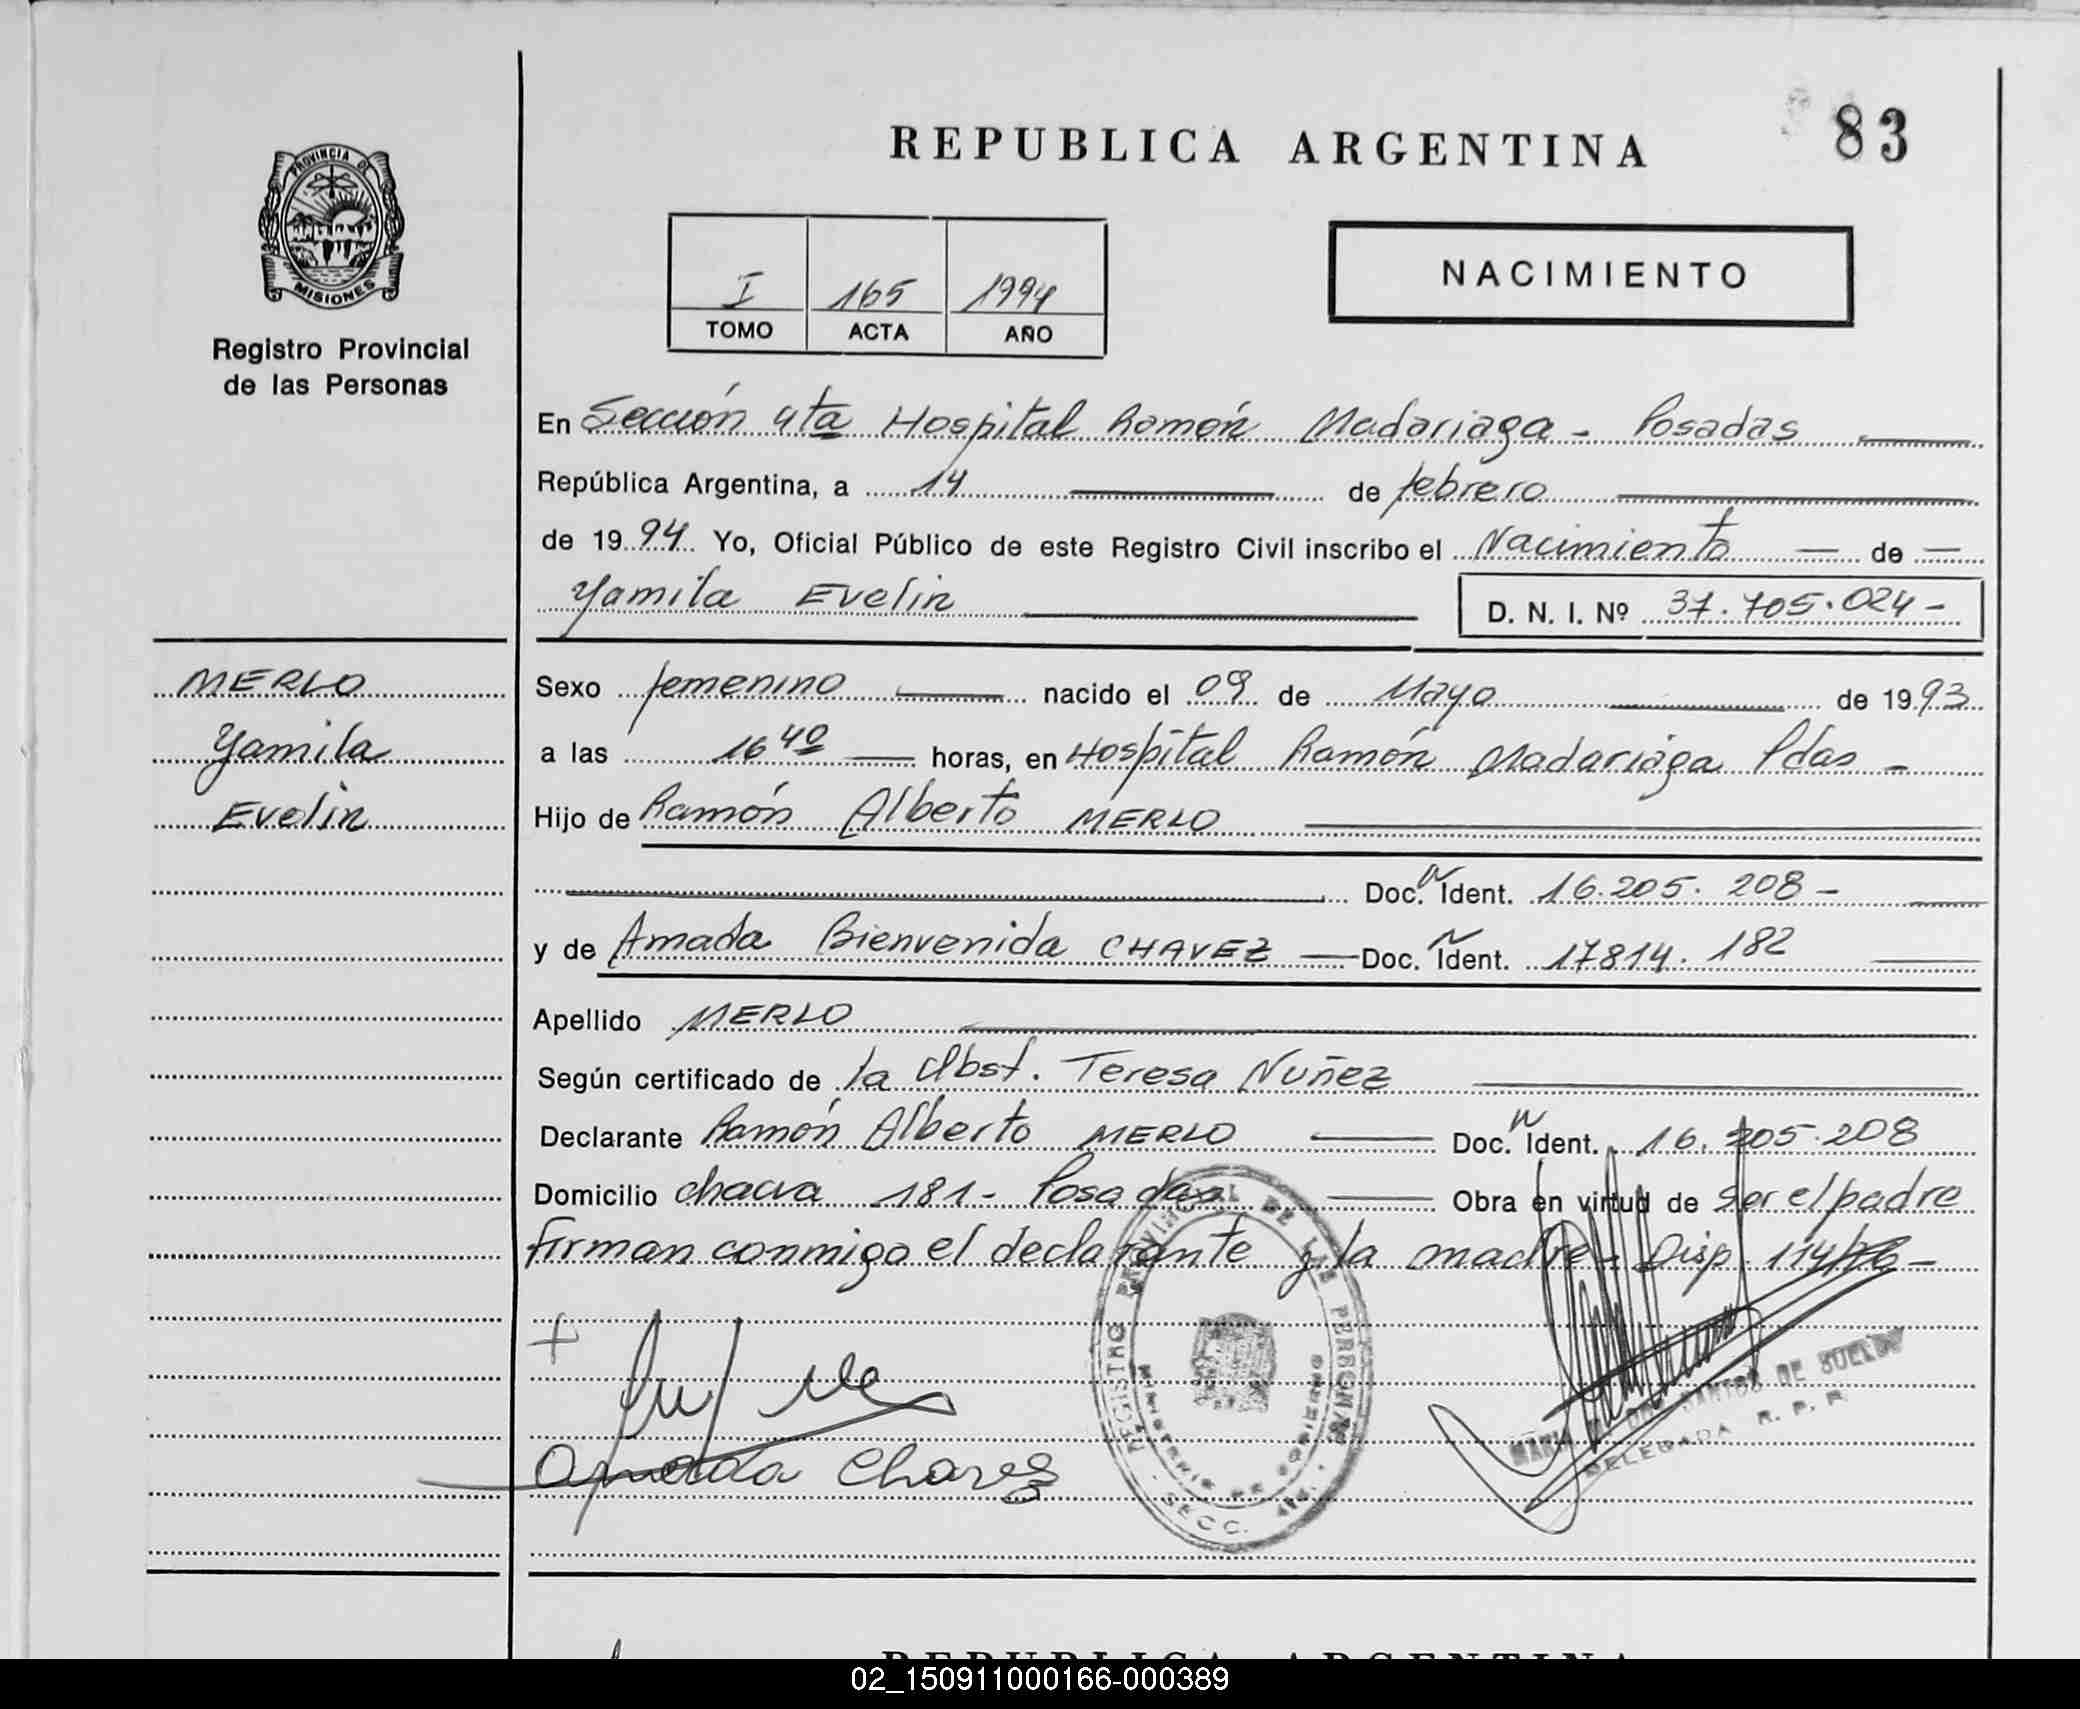 83
REPUBLICA ARGENTINA
PROVINCIA DE
MISIONES
Registro Provincial
de las Personas
I 165 1994
TOMO ACTA AÑO
NACIMIENTO
En Sección 4ta Hospital Ramón Madariaga - Posadas
República Argentina, a 14 de febrero
de 1994 Yo, Oficial Público de este Registro Civil inscribo el Nacimiento de
Yamila Evelin D. N. I. Nº 37.705.024-
MERLO
Yamila
Evelin
Sexo femenino nacido el 09 de Mayo de 1993
a las 16 40 horas, en Hospital Ramón Madariaga Pdas -
Hijo de Ramón Alberto MERLO
Doc. N Ident. 16.205.208-
y de Amada Bienvenida CHAVEZ Doc. N Ident. 17814.182
Apellido MERLO
Según certificado de la Obst. Teresa Nuñez
Declarante Ramón Alberto MERLO Doc. N Ident. 16.205.208
Domicilio chacra 181- Posadas Obra en virtud de ser el padre
firman conmigo el declarante y la madre - Disp. 114/76-
Amada Chavez
REGISTRO PROVINCIAL DE LAS PERSONAS
MINISTERIO DE GOBIERNO
SECC. 4ta.
SANTOS DE
DELEGADA R. P. P.
REPUBLICA ARGENTINA
02_150911000166-000389